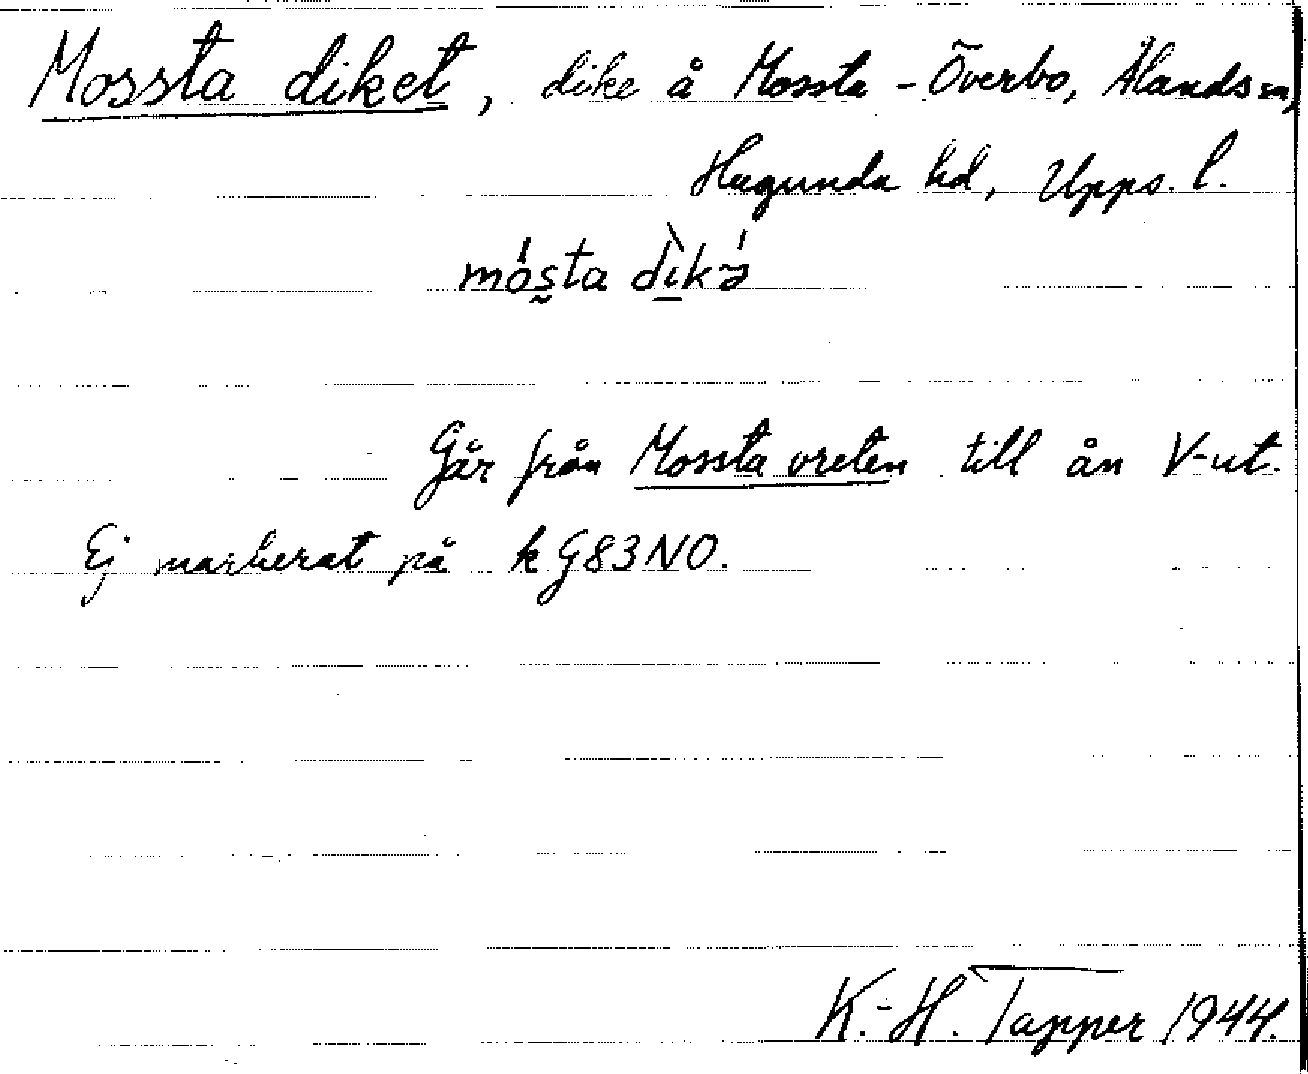 Mossta diket, dike å Mossta - Överbo, Ålands sn,
Hagunda hd, Upps. l.
mósta dìkə́
Går från Mossta vreten till ån V-ut.
Ej markerat på k G83NO.
K.-H. Tapper 1944.